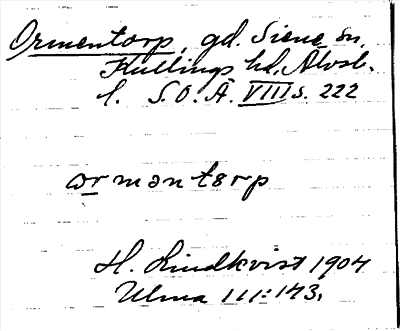 Ormentorp, gd. Siene sn,
Kullings hd, Älvsb.
l. S.O.Ä. VIII s. 222
orməntərp
H. Lindkvist 1904
Ulma 111:143.